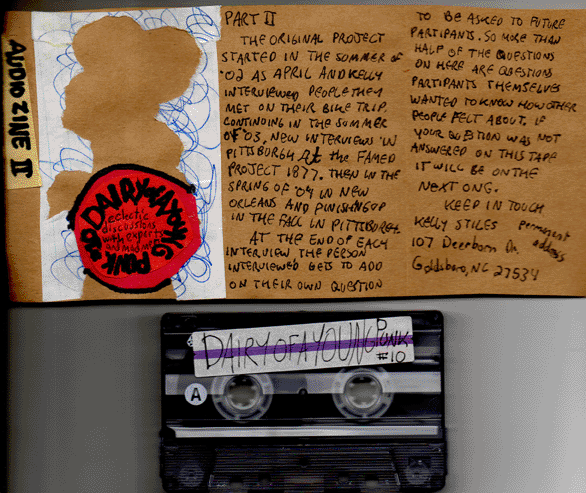 AUDIO ZINE II
DAIRY OF A YOUNG PUNK #10
eclectic
discussions
with experts
and
PART II
THE ORIGINAL PROJECT
STARTED IN THE SUMMER OF
'02 AS APRIL AND KELLY
INTERVIEWED PEOPLE THEY
MET ON THEIR BIKE TRIP.
CONTINUING IN THE SUMMER
OF '03, NEW INTERVIEWS IN
PITTSBURGH At the FAMED
PROJECT 1877. THEN IN THE
SPRING OF '04 IN NEW
ORLEANS AND FINISHING UP
IN THE FALL IN PITTSBURGH.
AT THE END OF EACH
INTERVIEW THE PERSON
INTERVIEWED GETS TO ADD
ON THEIR OWN QUESTION
TO BE ASKED TO FUTURE
PARTIPANTS. SO MORE THAN
HALF OF THE QUESTIONS
ON HERE ARE QUESTIONS
PARTIPANTS THEMSELVES
WANTED TO KNOW HOW OTHER
PEOPLE FELT ABOUT. IF
YOUR QUESTION WAS NOT
ANSWERED ON THIS TAPE
IT WILL BE ON THE
NEXT ONE.
KEEP IN TOUCH
KELLY STILES permanent
107 Deerborn Dr. address
Goldsboro, NC 27534
DAIRY OF A YOUNG PUNK
#10
A